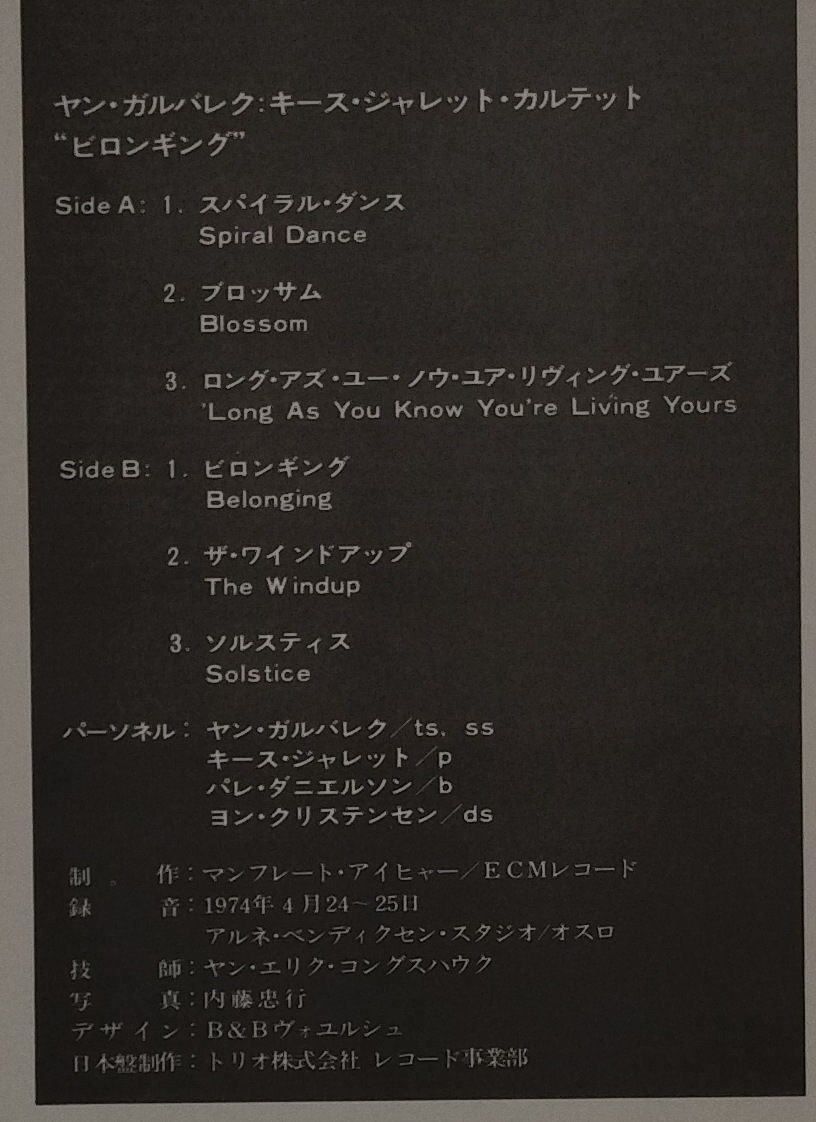 ヤン・ガルバレク:キース・ジャレット・カルテット
“ビロンギング”
Side A: 1. スパイラル・ダンス
Spiral Dance
2. ブロッサム
Blossom
3. ロング・アズ・ユー・ノウ・ユア・リヴィング・ユアーズ
'Long As You Know You're Living Yours
Side B: 1. ビロンギング
Belonging
2. ザ・ワインドアップ
The Windup
3. ソルスティス
Solstice
パーソネル: ヤン・ガルバレク/ts, ss
キース・ジャレット/p
パレ・ダニエルソン/b
ヨン・クリステンセン/ds
制 。 作:マンフレート・アイヒャー/ECMレコード
録 音:1974年4月24~25日
アルネ・ベンディクセン・スタジオ/オスロ
技 師:ヤン・エリク・コングスハウク
写 真:内藤忠行
デザイン:B&Bヴォユルシュ
日本盤制作:トリオ株式会社 レコード事業部